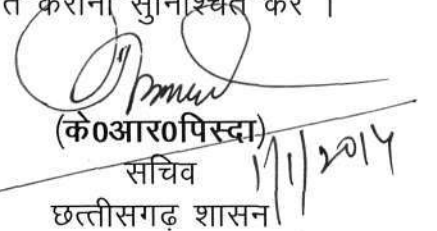 त कराना सुनिश्चित करें ।
(के0आर0पिस्दा)
सचिव
छत्तीसगढ़ शासन